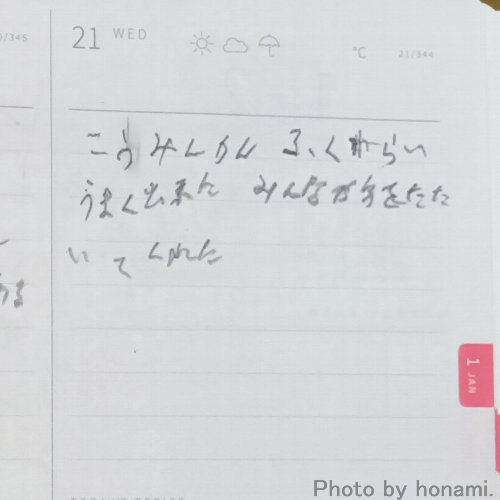 0/345
21 WED
°C 21/344
こうみんかん ふくわらい
うまく出来た みんなが手をたた
いてくれた
1 JAN
Photo by honami.